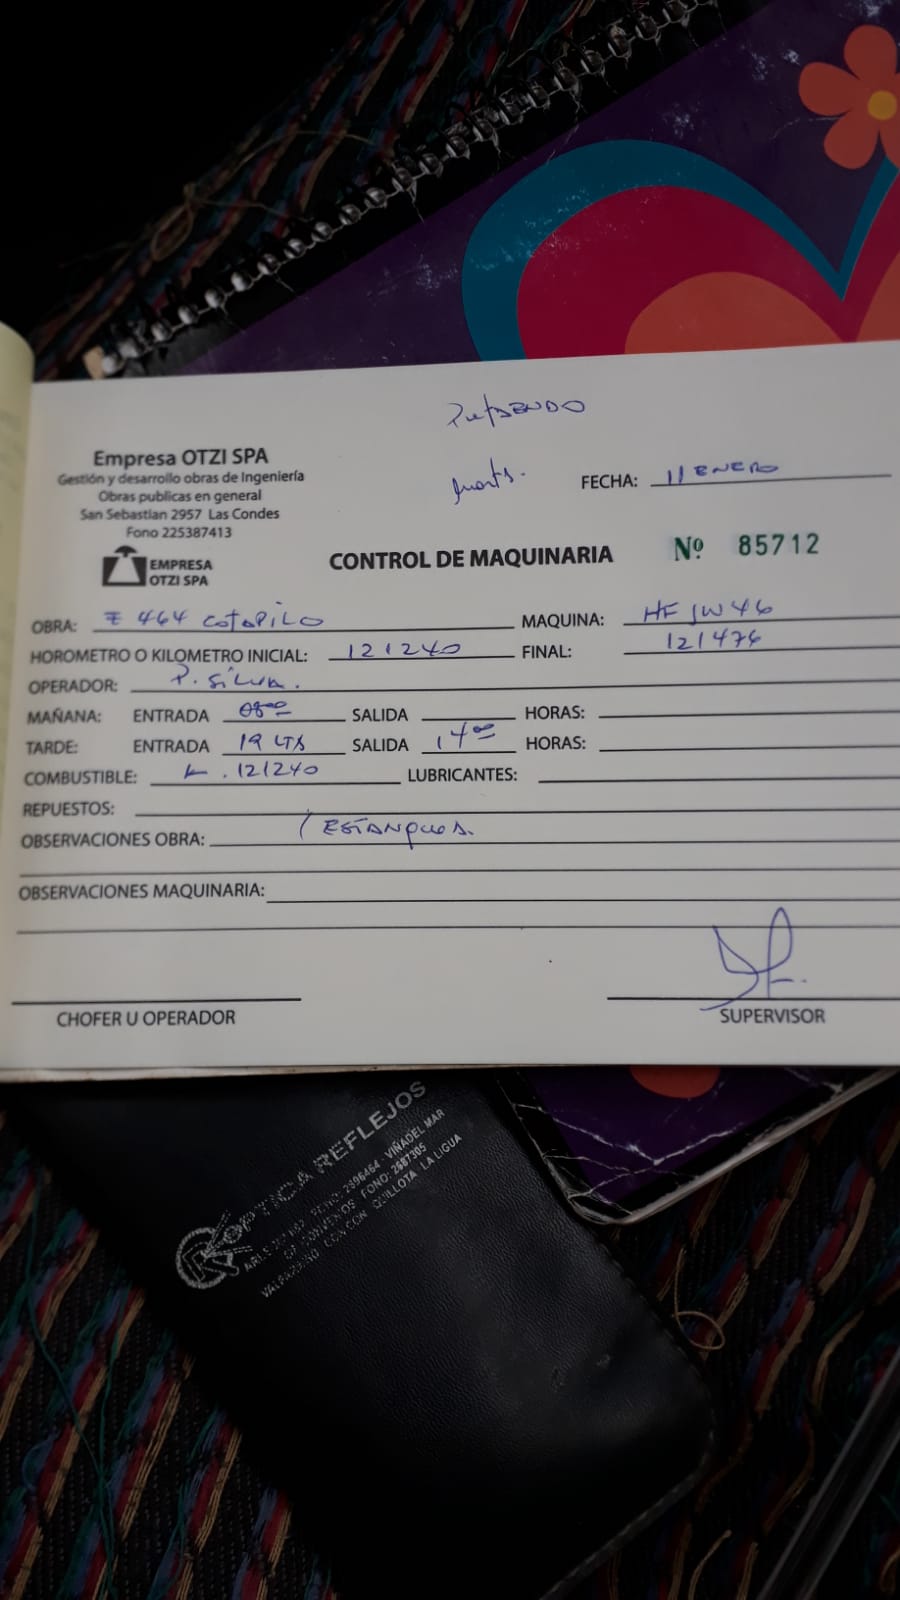 Empresa OTZI SPA
Gestión y desarrollo obras de Ingeniería
Obras publicas en general
San Sebastian 2957 Las Condes
Fono 225387413
EMPRESA
OTZI SPA
FECHA: 11 ENERO
CONTROL DE MAQUINARIA
Nº 85712
OBRA: E 464 CATAPILCO MAQUINA: HFJW46
HOROMETRO O KILOMETRO INICIAL: 121240 FINAL: 121476
OPERADOR: P. SILVA.
MAÑANA: ENTRADA 08°° SALIDA HORAS:
TARDE: ENTRADA 19 LTS SALIDA 14°° HORAS:
COMBUSTIBLE: K. 121240 LUBRICANTES:
REPUESTOS:
OBSERVACIONES OBRA: ( ESTANQUES.
OBSERVACIONES MAQUINARIA:
CHOFER U OPERADOR
SUPERVISOR
OPTICA REFLEJOS
FONO: 2896464 - VIÑA DEL MAR
FONO: 2687305
VALPARAISO CONCON QUILLOTA LA LIGUA